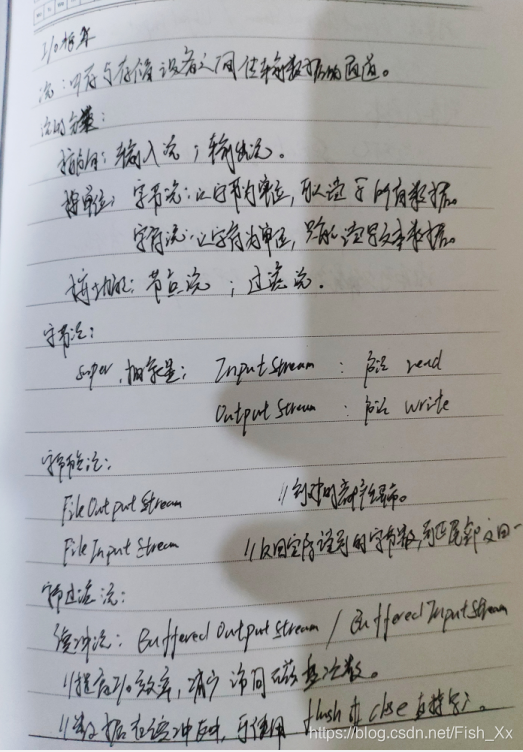 I/O框架
流:内存与存储设备之间传输数据的通道。
流的分类:
按方向:输入流;输出流。
按单位:字节流:以字节为单位,可以读写所有数据。
字符流:以字符为单位,只能读写文本数据。
按功能:节点流;过滤流。
字节流:
super,抽象类:InputStream:方法 read
OutputStream:方法 write
字节节点流:
FileOutputStream
FileInputStream //返回实际读到的字节数,到达尾部返回-
字节过滤流:
缓冲流:BufferedOutputStream / BufferedInputStream
//提高I/O效率,减少访问磁盘次数。
//数据在缓冲区中,可使用 flush or close
https://blog.csdn.net/Fish_Xx